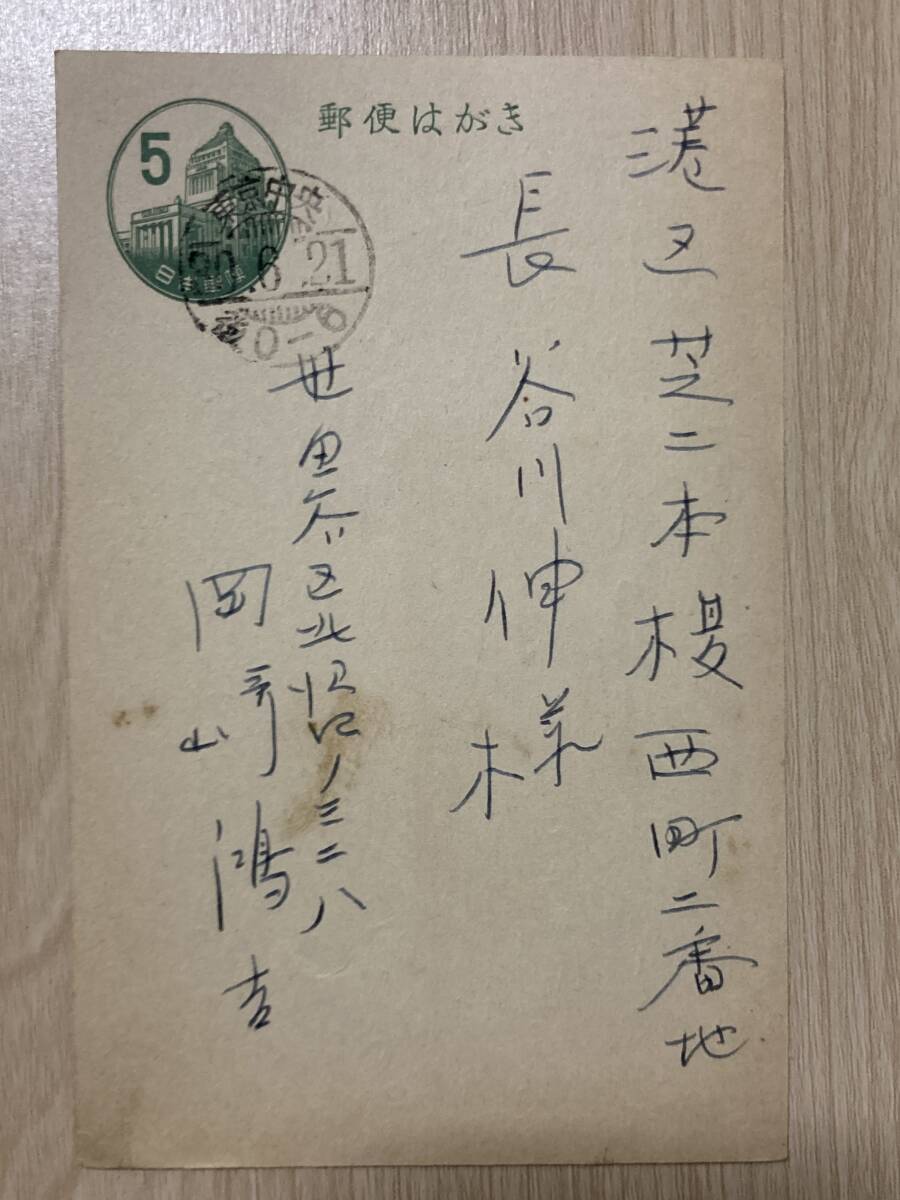 郵便はがき
5
日本郵便
東京中央
6.21
後0-6
港区芝二本榎西町二番地
長谷川伸様
世田谷区北沢ノ三二八
岡崎鴻吉